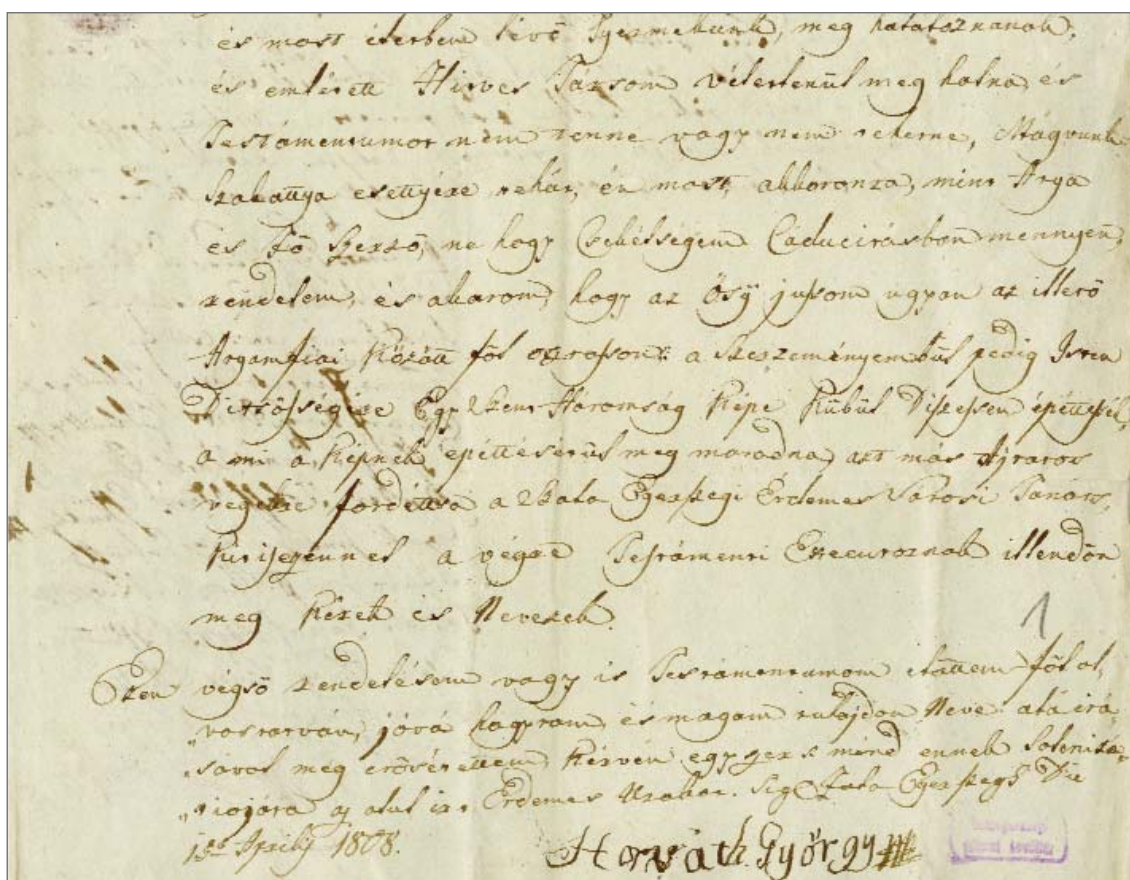 és most életben lévő Gyermekünk, meg halatoznanak,
és emlétett Hitves Társom véletlenűl meg halna, és
Testámentumot nem tenne vagy nem tehetne, Magvunk
Szakattya esettyére tehát, én most, akkoronra, mint Atya
és Fő Szerző, ne hogy Csekélségem Caducitásban mennyen,
rendelem, és akarom, hogy az Ősÿ jussom ugyan az illető
Atyamfiai között föl osztasson: a Szerzeményembűl pedig Isten
Ditsősségére Egy Szent Háromság Képe Kűbűl Diszessen épéttessék,
a mi a Képnek épéttésétűl meg maradna, azt más Ájtatos
végekre fordéttsa a Szala Egerszegi Érdemes Városi Tanács,
kit is ezennel a végre Testámenti Executornak illendőn
meg kérek és Nevezek.
1
Ezen végső rendelésem vagy is Testámentumom előttem föl ol„
„vastatván, jóvá hagytam, és magam tulajdon Neve alá irá„
„sával meg erősétettem, Kérvén egyszers mind ennek Solenniza„
„tiojára az alul irt Érdemes Urakat. Sig. Szala Egerszegh Die
1a Aprilis 1808.
Horváth György